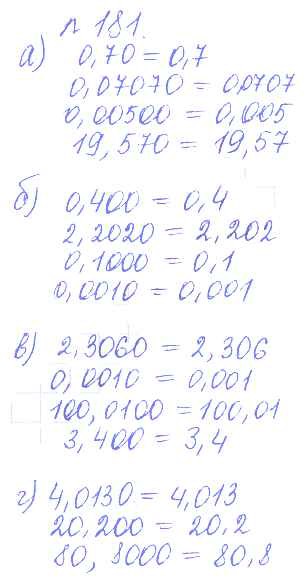 № 181.
а) 0,70 = 0,7
0,07070 = 0,0707
0,00500 = 0,005
19,570 = 19,57
б) 0,400 = 0,4
2,2020 = 2,202
0,1000 = 0,1
0,0010 = 0,001
в) 2,3060 = 2,306
0,0010 = 0,001
100,0100 = 100,01
3,400 = 3,4
г) 4,0130 = 4,013
20,200 = 20,2
80,8000 = 80,8